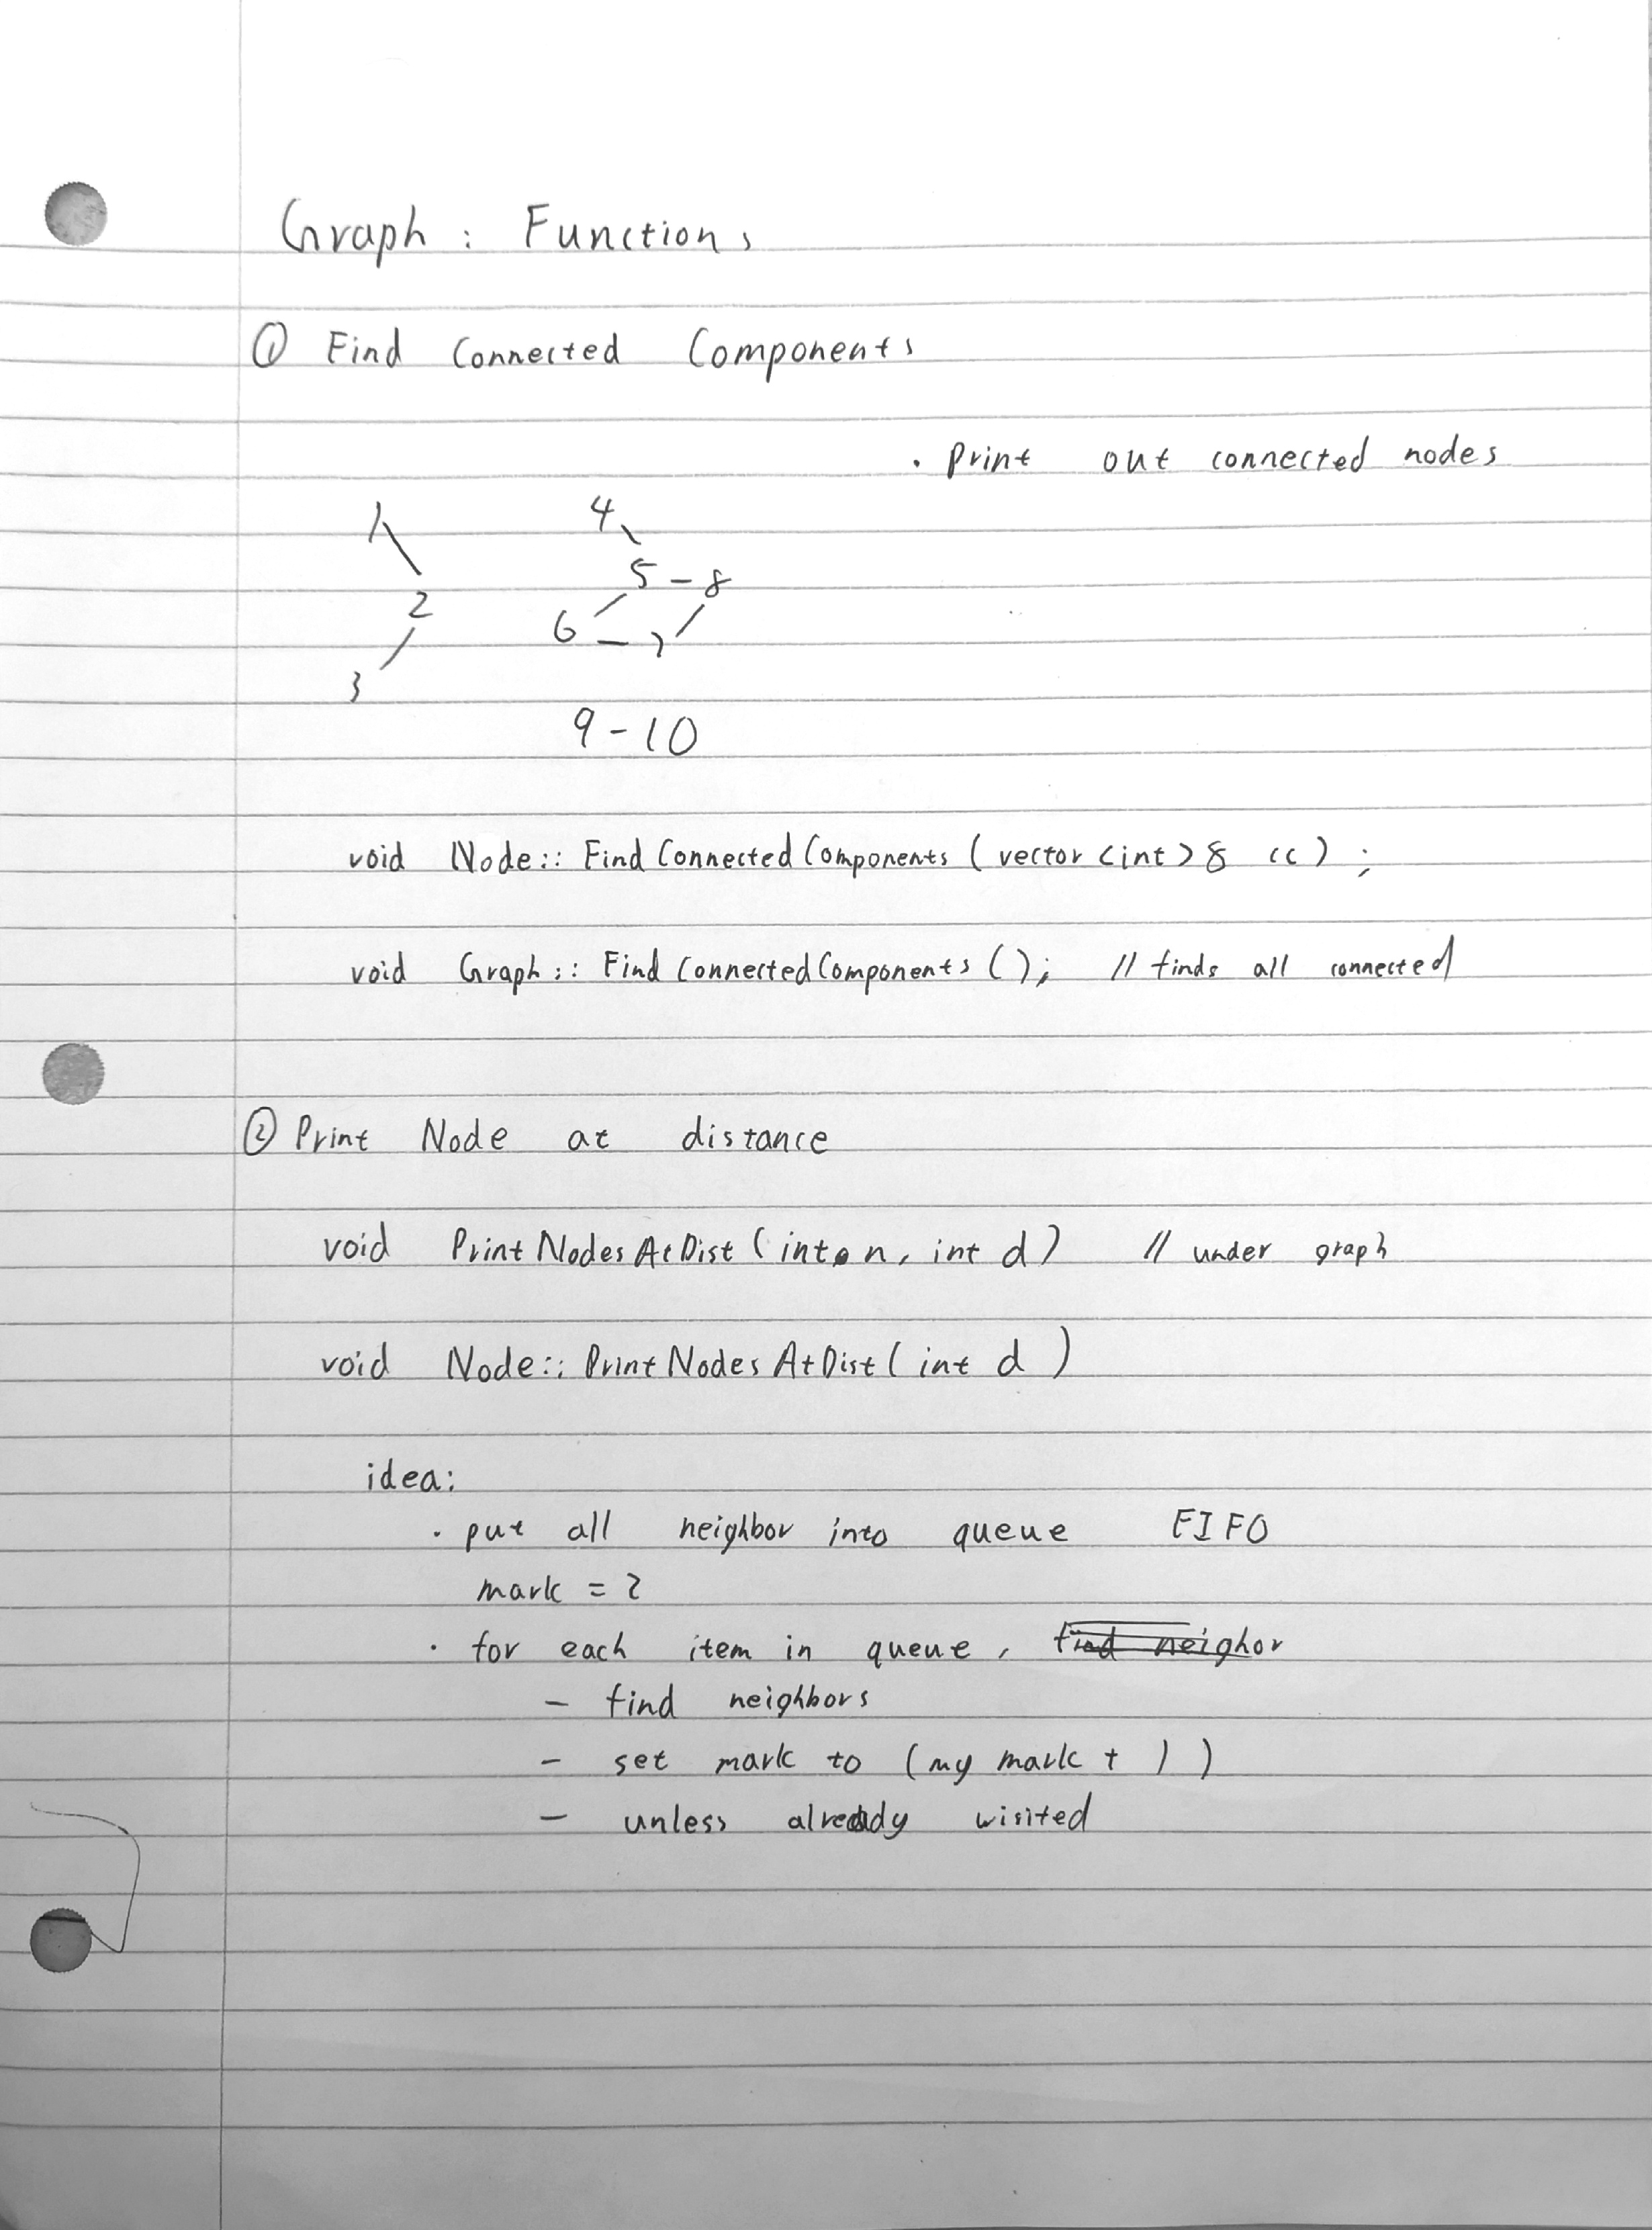 Graph : Functions
① Find Connected Components
• Print out connected nodes
1 4
5 - 8
2
6 - 7
3
9 - 10
void Node:: FindConnectedComponents (vector<int>& cc) ;
void Graph:: FindConnectedComponents (); // finds all connected
② Print Node at distance
void PrintNodesAtDist (int n, int d) // under graph
void Node:: PrintNodesAtDist (int d )
idea:
• put all neighbor into queue FIFO
mark = 2
• for each item in queue, find neighor
- find neighbors
- set mark to (my mark + 1)
- unless already wisited